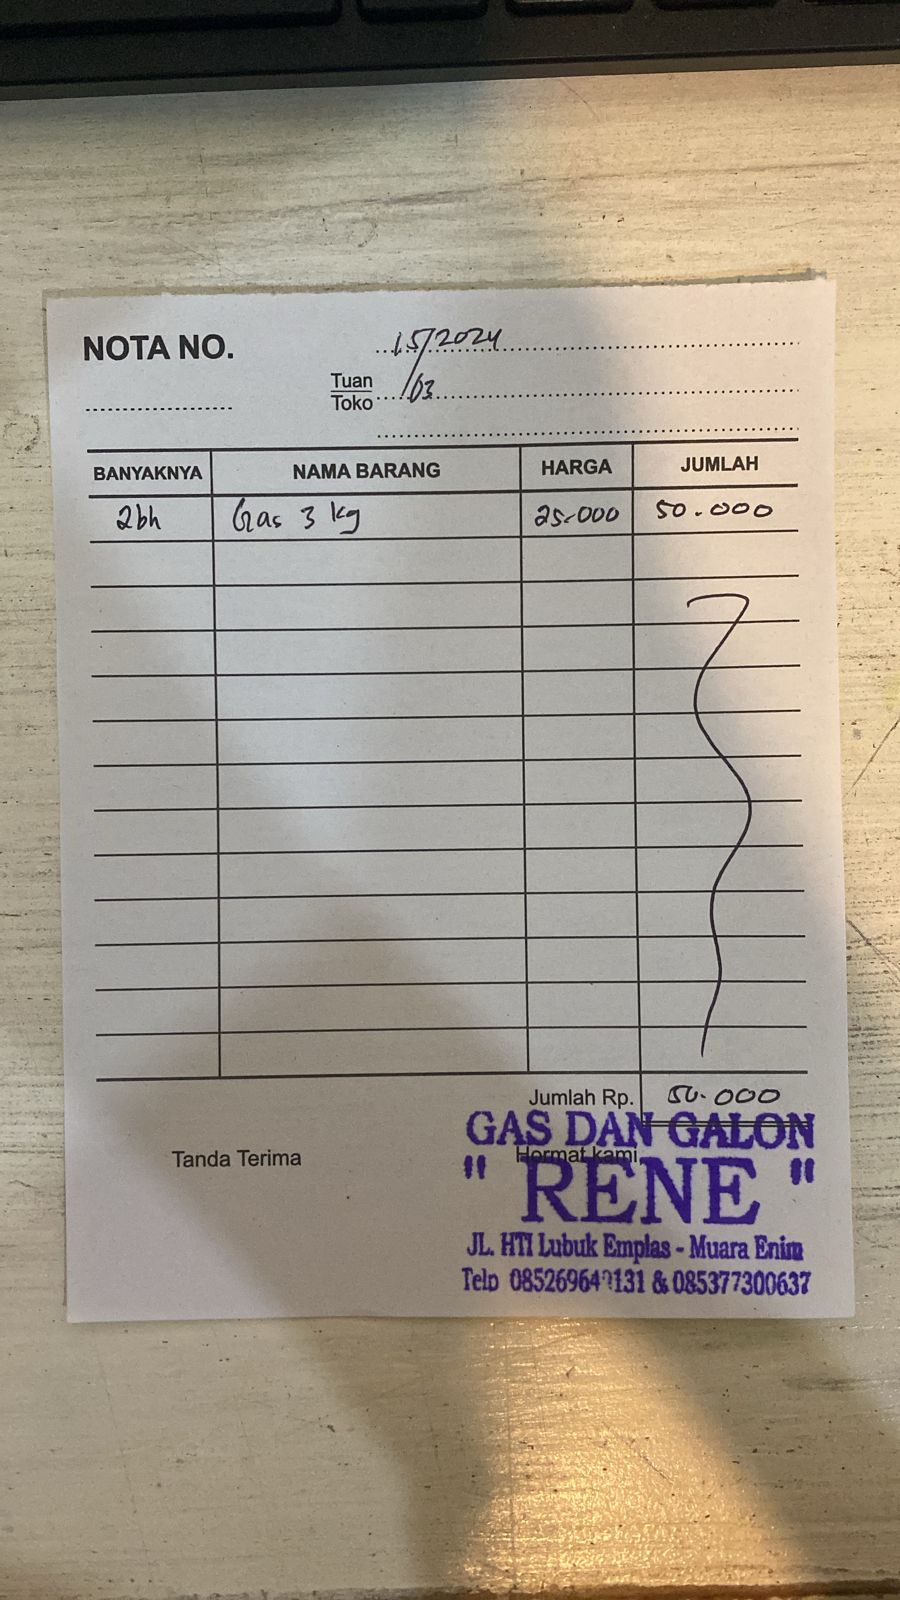 NOTA NO.
15/2024
Tuan
Toko
/03
BANYAKNYA NAMA BARANG HARGA JUMLAH
2bh Gas 3 kg 25.000 50.000
Jumlah Rp. 50.000
Tanda Terima Hormat kami
GAS DAN GALON
" RENE "
JL. HTI Lubuk Emplas - Muara Enim
Telp & 085377300637